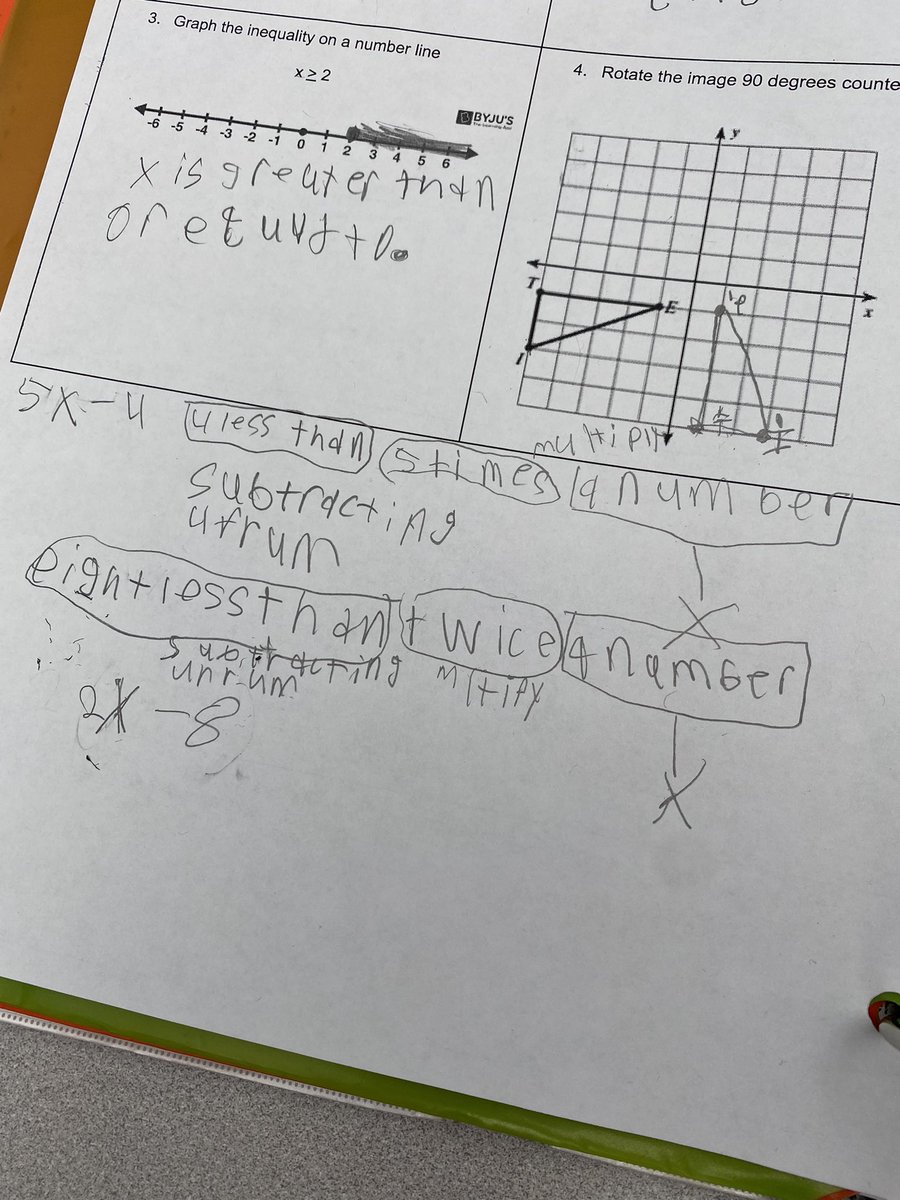 3. Graph the inequality on a number line
x ≥ 2
BYJU'S
-6 -5 -4 -3 -2 -1 0 1 2 3 4 5 6
x is greater than
or equal to.
4. Rotate the image 90 degrees counte
y
x
T
E
I
5x-4 4 less than 5 times a number
multiply
subtracting
x
eight less than twice a number
subtracting
2x -8
x